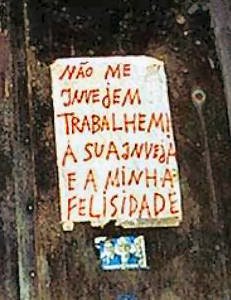 NÃO ME
INVEJEM
TRABALHEM!
A SUA INVEJA
E A MINHA
FELISIDADE